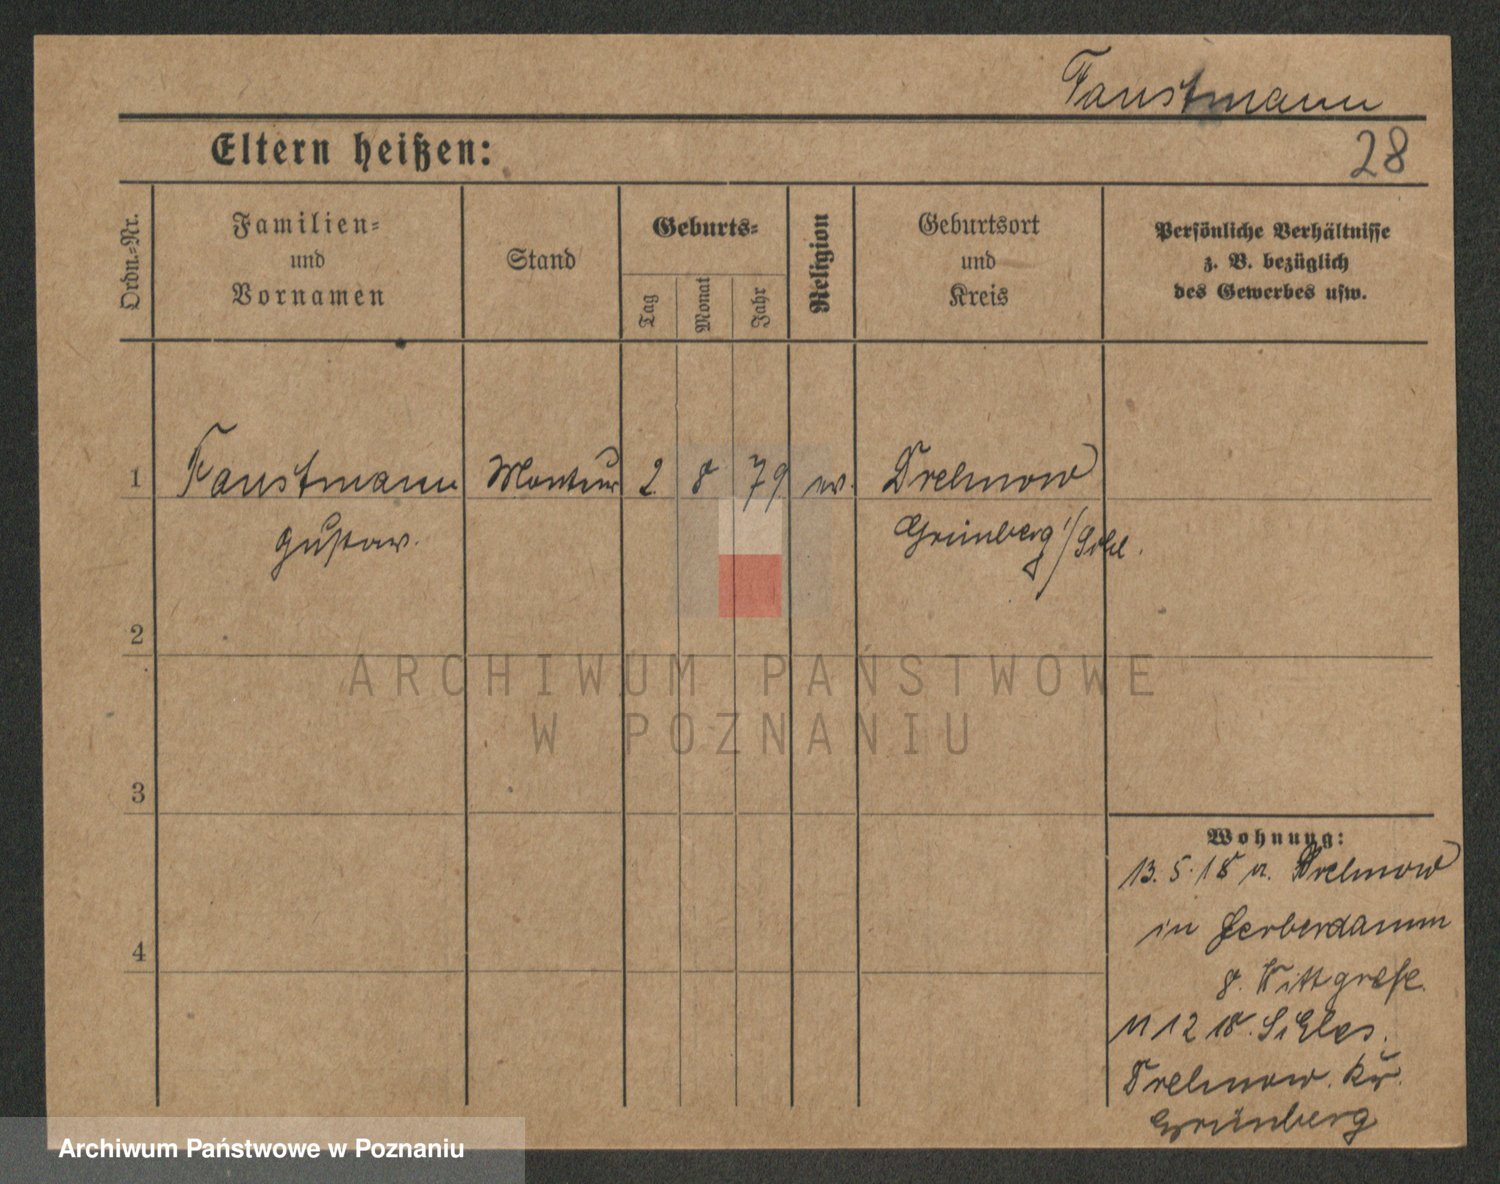 Faustmann
Eltern heißen:
28
Ordn.-Nr.
Familien-
und
Vornamen
Stand
Geburts-
Tag
Monat
Jahr
Religion
Geburtsort
und
Kreis
Persönliche Verhältnisse
z. B. bezüglich
des Gewerbes usw.
1 Faustmann Monteur 2. 8 79 ev. Drelnow
Gustav. Grünberg i/Schl.
2
ARCHIWUM PAŃSTWOWE
W POZNANIU
3
Wohnung:
13. 5. 18 a. Drelnow
in Gerberdamm
8.
4
11 12 18.
Drelnow. Kr.
Grünberg
Archiwum Państwowe w Poznaniu